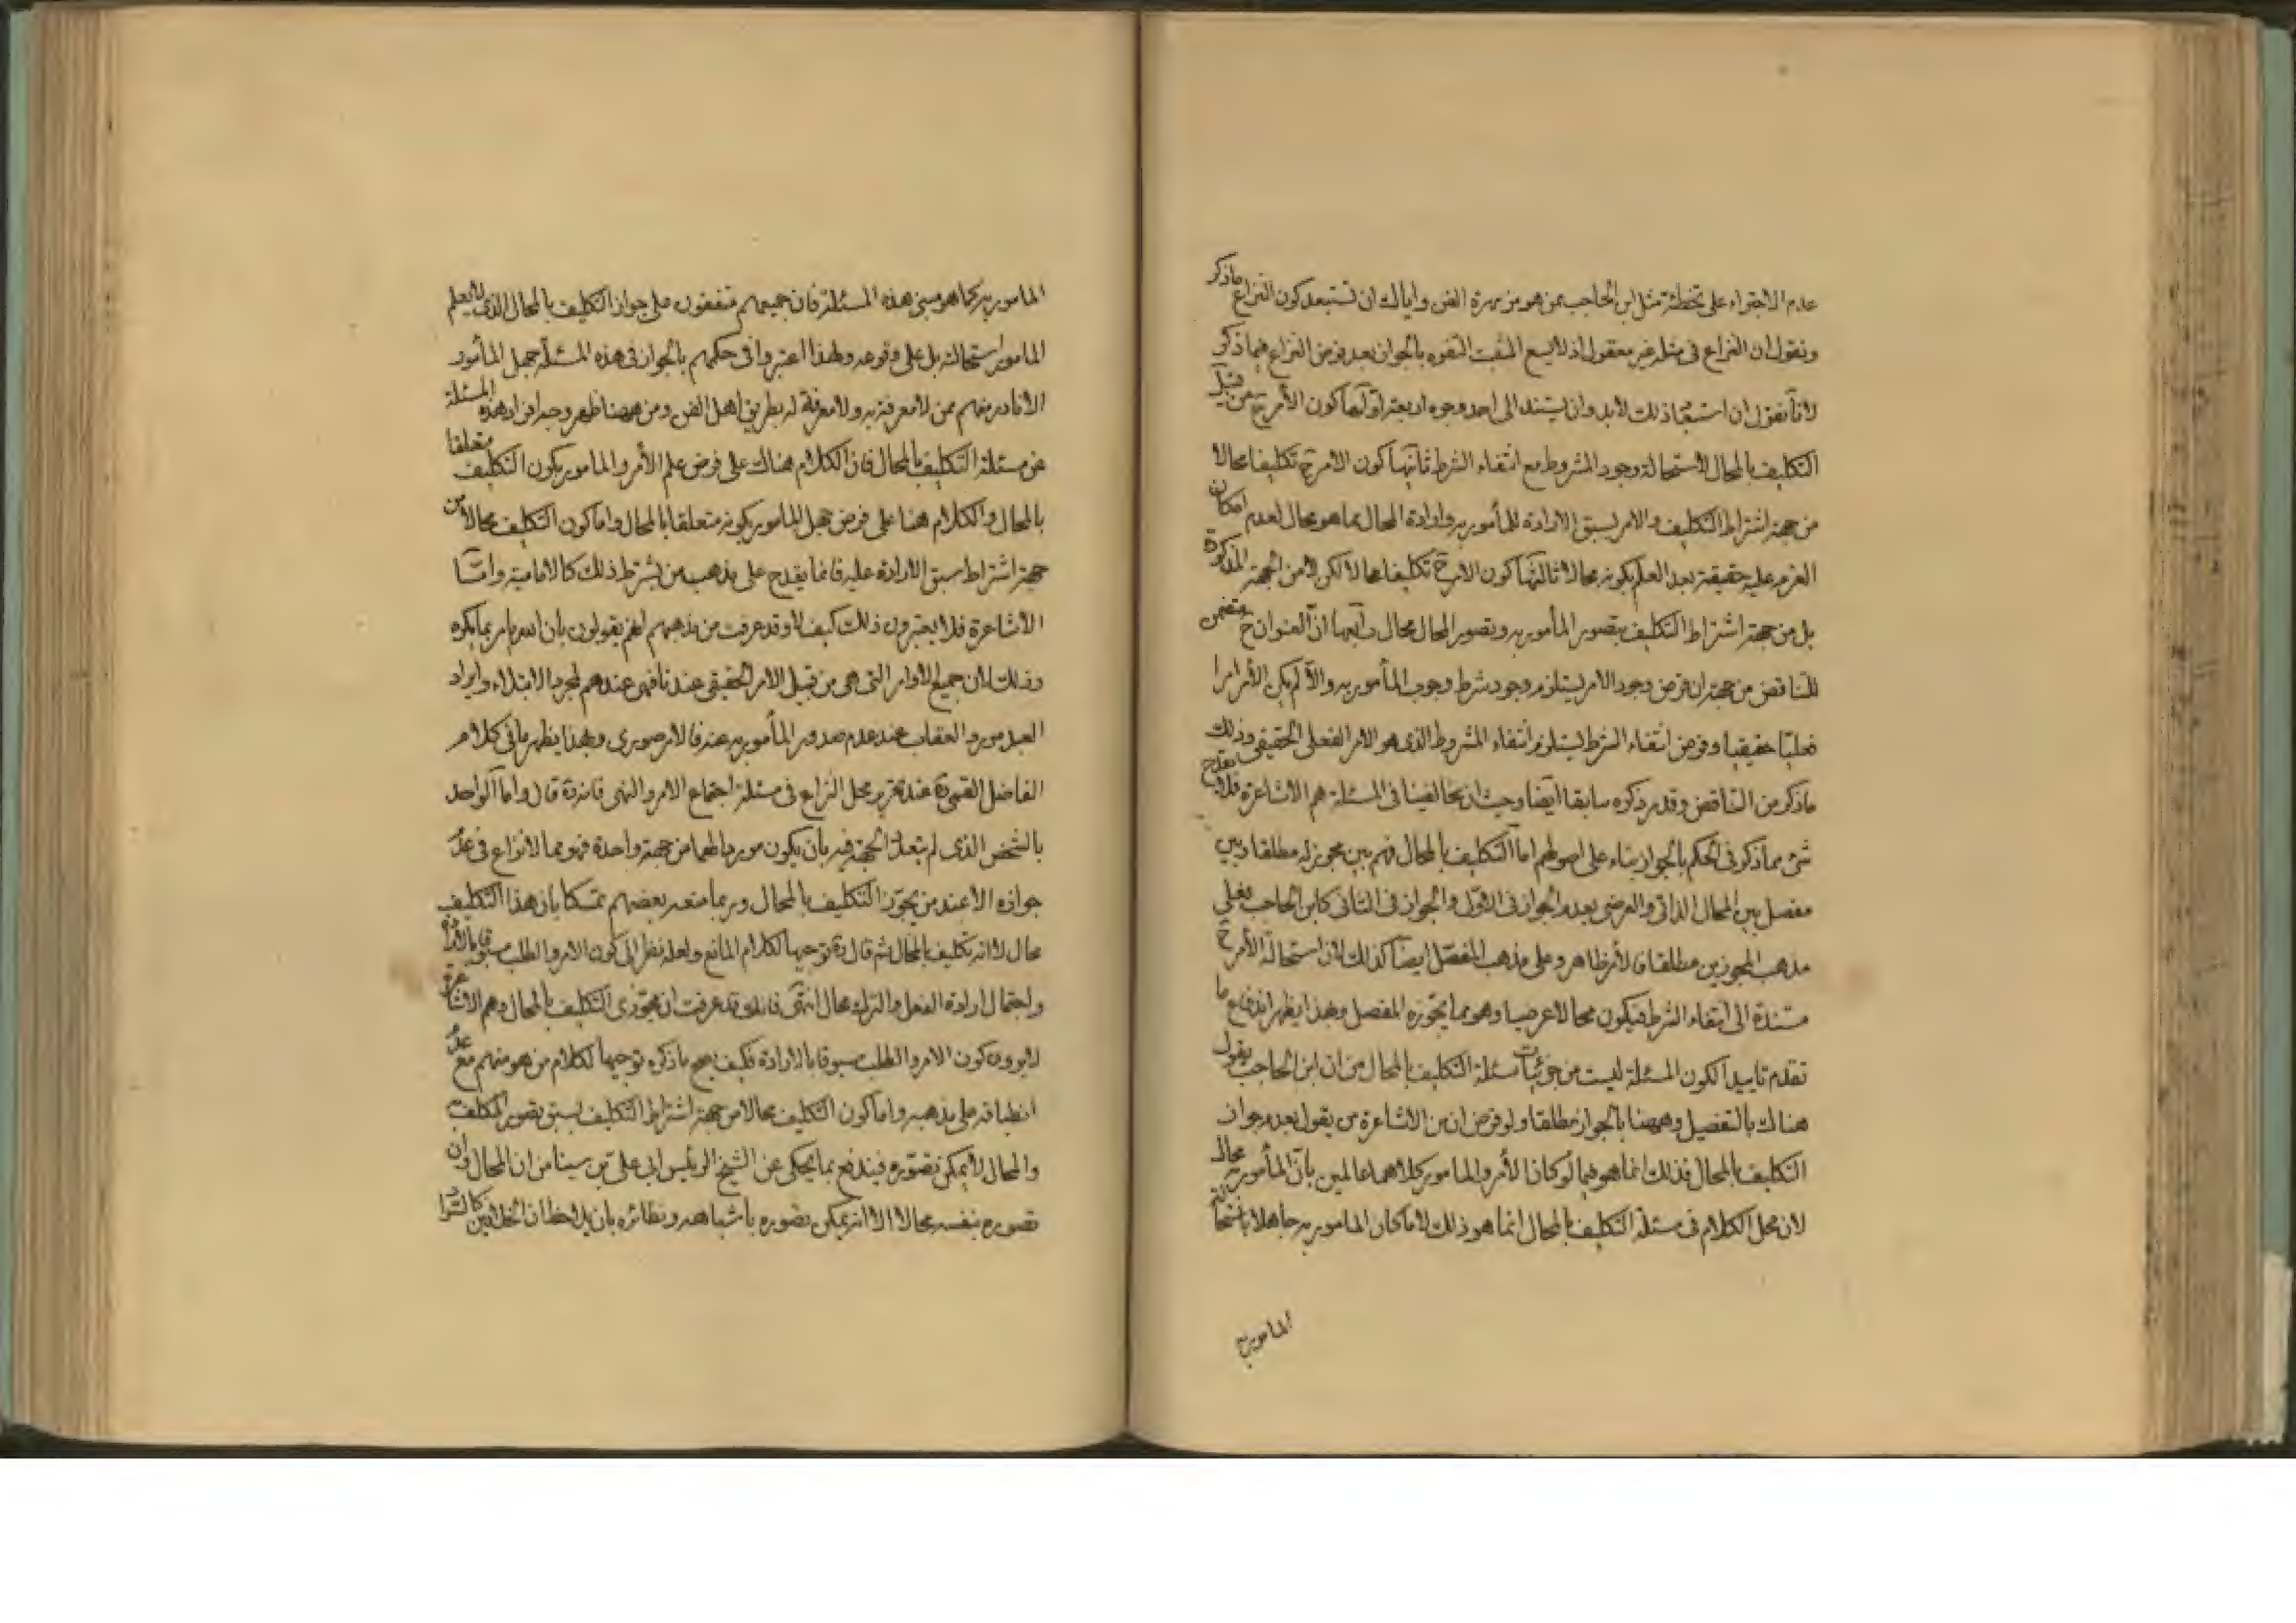 عدم الاجتراء على تخطئة مثل ابن الحاجب ممن هو من مهرة الفن واياك ان تستبعد كون النزاع ماذكر
ونقول ان النزاع فى مثله غير معقول اذ لا يسع المثبت التفوه بالجواز بعد فرض النزاع فيما ذكر
لانا نقول ان استبعاد ذلك لابد وان يستند الى احد وجوه اربعة اولها كون الأمر ح من قبيل
التكليف بالمحال لاستحالة وجود المشروط مع انتفاء الشرط ثانيها كون الامر ح تكليفا محالا
من جهة اشتراط التكليف والامر بسبق الارادة للمأمور به وارادة المحال بما هو محال لعدم امكان
العزم عليه حقيقة بعد العلم بكونه محالا ثالثها كون الامر ح تكليفا محالا لكن لا من الجهة المذكورة
بل من جهة اشتراط التكليف بتصور المأمور به وتصور المحال محال رابعها ان العنوان ح متضمن
للتناقض من جهة ان فرض وجود الامر يستلزم وجود شرط وجوب المأمور به والا لم يكن الأمر امرا
فعليا حقيقيا وفرض انتفاء الشرط يستلزم انتفاء المشروط الذى هو الامر الفعلى الحقيقى وذلك
ماذكر من التناقض وقد مر ذكره سابقا ايضا وحيث ان مخالفينا فى المسئلة هم الاشاعرة فلا يقدح
شئ مما ذكر فى الحكم بالجواز بناء على اصولهم اما التكليف بالمحال فهم بين مجوز له مطلقا وبين
مفصل بين المحال الذاتى والعرضى بعدم الجواز فى الاول والجواز فى الثانى كابن الحاجب فعلى
مذهب المجوزين مطلقا فالأمر ظاهر وعلى مذهب المفصل ايضا كذلك لان استحالة الأمر ح
مستندة الى انتفاء الشرط فيكون محالا عرضيا وهو مما يجوزه المفصل وبهذا يظهر اندفاع ما
تقدم تاييدا لكون المسئلة ليست من جزئيات مسئلة التكليف بالمحال من ان ابن الحاجب يقول
هناك بالتفصيل وههنا بالجواز مطلقا ولو فرض ان من الاشاعرة من يقول بعدم جواز
التكليف بالمحال فذلك انما هو فيما لو كان الأمر والمامور كلاهما عالمين بأن المأمور به محال
لان محل الكلام فى مسئلة التكليف بالمحال انما هو ذلك لا ما كان المامور به جاهلا باستحالة
المامور به
المامور به كما هو مبنى هذه المسئلة فان جميعهم متفقون على جواز التكليف بالمحال الذى لا يعلم
المامور استحالته بل على وقوعه ولهذا اعتبروا فى حكمهم بالجواز فى هذه المسئلة جهل المأمور
الا نادر منهم ممن لا معرفة به ولا معرفة له بطريق اهل الفن ومن ههنا ظهر وجه افراد هذه المسئلة
عن مسئلة التكليف بالمحال فان الكلام هناك على فرض علم الأمر والمامور بكون التكليف متعلقا
بالمحال والكلام هنا على فرض جهل المامور بكونه متعلقا بالمحال واما كون التكليف محالا من
جهة اشتراط سبق الارادة عليه فانما يقدح على مذهب من يشترط ذلك كالامامية واما
الاشاعرة فلا يعتبرون ذلك كيف لا وقد عرفت من مذهبهم انهم يقولون بان الله يامر بما يكره
وذلك لان جميع الاوامر التى هى من قبيل الامر الحقيقى عندنا فهى عندهم لمجرد الابتلاء وايراد
العبد مورد العقاب عند عدم صدور المأمور به عنه فالامر صورى وبهذا يظهر ما فى كلام
الفاضل القمى ره عند تحرير محل النزاع فى مسئلة اجتماع الامر والنهى فانه ره قال واما الواحد
بالشخص الذى لم يتعدد الجهة فيه بأن يكون موردا لهما من جهة واحدة فهو مما لا نزاع فى عدم
جوازه الا عند من يجوز التكليف بالمحال وربما منعه بعضهم تمسكا بان هذا التكليف
محال لا انه تكليف بالمحال ثم قال ره توجيها لكلام المانع ولعله نظر الى كون الامر والطلب مسبوقا بالارادة
واجتماع ارادة الفعل والترك محال انتهى فانك قد عرفت ان مجوزى التكليف بالمحال وهم الاشاعرة
لا يرون كون الامر والطلب مسبوقا بالارادة فكيف يصح ما ذكره توجيها لكلام من هو منهم مع عدم
انطباقه على مذهبه واما كون التكليف محالا من جهة اشتراط التكليف بسبق تصور المكلف به
والمحال لا يمكن تصوره فيندفع بما يحكى عن الشيخ الرئيس ابى على بن سينا من ان المحال وان
تصوره بنفسه محالا الا انه يمكن تصوره باشباهه ونظائره بان يلاحظ ان الخلافين كالسواد